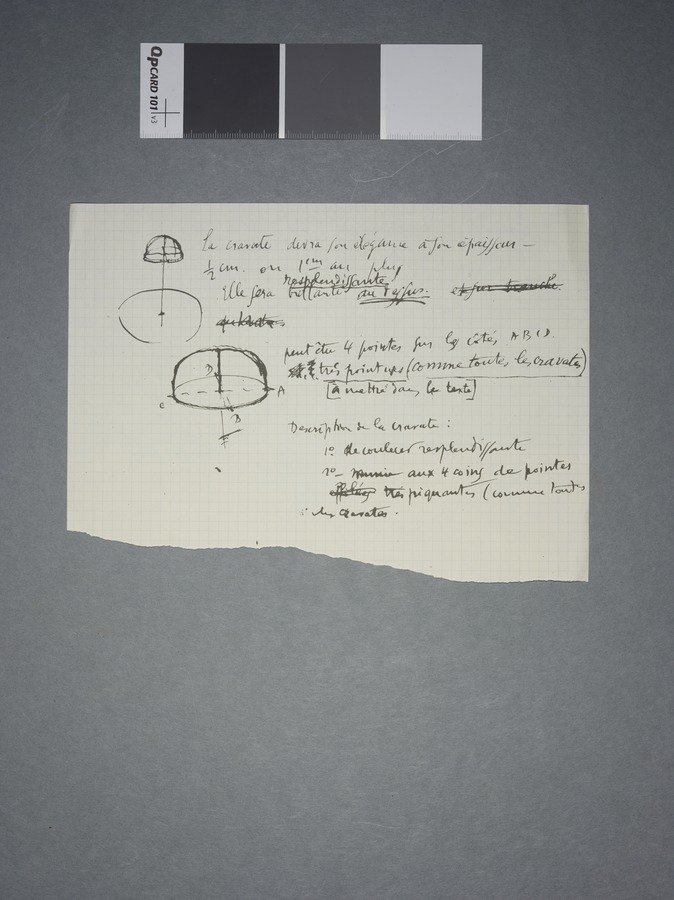 QPCARD 101 v3
La cravate devra son élégance à son épaisseur —
½ cm. ou 1 cm au plus
resplendissante
Elle sera brillante au dessus. et sur tranche.
peut être 4 pointes sur les côtés ABCD.
très pointues (comme toutes les cravates)
[à mettre dans le texte]
D
A
C
B
Description de la cravate :
1º de couleur resplendissante
2º — munie aux 4 coins de pointes
effilées très piquantes (comme toutes
les cravates.